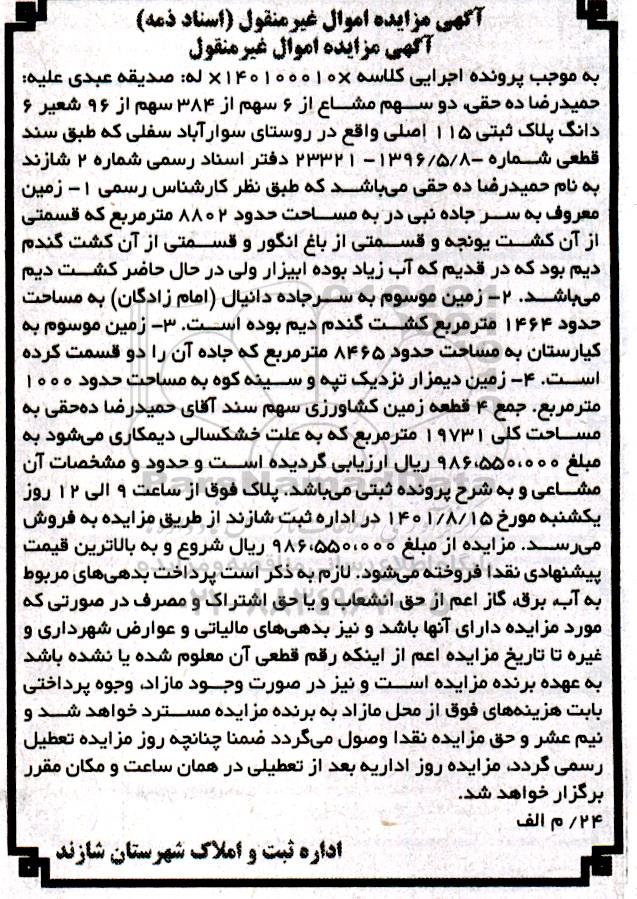 آگهی مزایده اموال غیرمنقول (اسناد ذمه)
آگهی مزایده اموال غیرمنقول
به موجب پرونده اجرایی کلاسه ×۱۴۰۱۰۰۰۱۰× له: صدیقه عبدی علیه:
حمیدرضا ده حقی، دو سهم مشاع از ۶ سهم از ۳۸۴ سهم از ۹۶ شعیر ۶
دانگ پلاک ثبتی ۱۱۵ اصلی واقع در روستای سوارآباد سفلی که طبق سند
قطعی شماره -۱۳۹۶/۵/۸- ۲۳۳۲۱ دفتر اسناد رسمی شماره ۲ شازند
به نام حمیدرضا ده حقی می‌باشد که طبق نظر کارشناس رسمی ۱- زمین
معروف به سر جاده نبی در به مساحت حدود ۸۸۰۲ مترمربع که قسمتی
از آن کشت یونجه و قسمتی از باغ انگور و قسمتی از آن کشت گندم
دیم بود که در قدیم که آب زیاد بوده ابیزار ولی در حال حاضر کشت دیم
می‌باشد. ۲- زمین موسوم به سرجاده دانیال (امام زادگان) به مساحت
حدود ۱۴۶۴ مترمربع کشت گندم دیم بوده است. ۳- زمین موسوم به
کیارستان به مساحت حدود ۸۴۶۵ مترمربع که جاده آن را دو قسمت کرده
است. ۴- زمین دیمزار نزدیک تپه و سینه کوه به مساحت حدود ۱۰۰۰
مترمربع. جمع ۴ قطعه زمین کشاورزی سهم سند آقای حمیدرضا ده‌حقی به
مساحت کلی ۱۹۷۳۱ مترمربع که به علت خشکسالی دیمکاری می‌شود به
مبلغ ۹۸۶،۵۵۰،۰۰۰ ریال ارزیابی گردیده است و حدود و مشخصات آن
مشاعی و به شرح پرونده ثبتی می‌باشد. پلاک فوق از ساعت ۹ الی ۱۲ روز
یکشنبه مورخ ۱۴۰۱/۸/۱۵ در اداره ثبت شازند از طریق مزایده به فروش
می‌رسد. مزایده از مبلغ ۹۸۶،۵۵۰،۰۰۰ ریال شروع و به بالاترین قیمت
پیشنهادی نقدا فروخته می‌شود. لازم به ذکر است پرداخت بدهی‌های مربوط
به آب، برق، گاز اعم از حق انشعاب و یا حق اشتراک و مصرف در صورتی که
مورد مزایده دارای آنها باشد و نیز بدهی‌های مالیاتی و عوارض شهرداری و
غیره تا تاریخ مزایده اعم از اینکه رقم قطعی آن معلوم شده یا نشده باشد
به عهده برنده مزایده است و نیز در صورت وجود مازاد، وجوه پرداختی
بابت هزینه‌های فوق از محل مازاد به برنده مزایده مسترد خواهد شد و
نیم عشر و حق مزایده نقدا وصول می‌گردد ضمنا چنانچه روز مزایده تعطیل
رسمی گردد، مزایده روز اداریه بعد از تعطیلی در همان ساعت و مکان مقرر
برگزار خواهد شد.
۲۴/ م الف
اداره ثبت و املاک شهرستان شازند